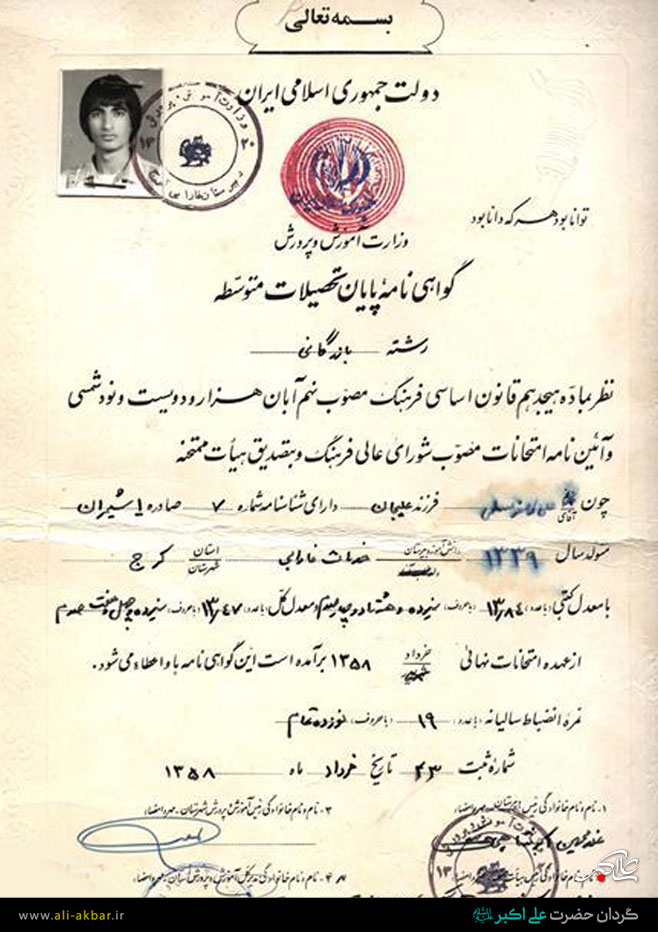 بسمه تعالی
دولت جمهوری اسلامی ایران
توانا بود هر که دانا بود
وزارت آموزش و پرورش
گواهی نامهٔ پایان تحصیلات متوسّطه
رشته بازرگانی
نظر بمادّه هیجدهم قانون اساسی فرهنگ مصوّب نهم آبان هزار و دویست و نود شمسی
و آئین نامه امتحانات مصوّب شورای عالی فرهنگ و بتصدیق هیأت ممتحنه
چون آقای فرزند علیجان دارای شناسنامه شماره ۷ صادره از شمیران
متولد سال ۱۳۳۹ دانش آموز دبیرستان خدمات فارابی استان شهرستان کرج
با معدل کتبی (با عدد) ۱۳/۸۴ (با حروف) سیزده و هشتاد و چهار صدم و معدل کل (با عدد) ۱۳/۴۷ (با حروف) سیزده و چهل و هفت صدم
از عهده امتحانات نهائی خرداد شهریور ۱۳۵۸ برآمده است این گواهی نامه باو اعطاء می شود.
نمره انضباط سالیانه (با عدد) ۱۹ (با حروف) نوزده تمام
شماره ثبت ۲۳ تاریخ خرداد ماه ۱۳۵۸
۱- نام و نام خانوادگی رئیس دبیرستان - مهر و امضاء
۳- نام و نام خانوادگی رئیس آموزش و پرورش شهرستان - مهر و امضاء
۴- نام و نام خانوادگی مدیر کل آموزش و پرورش استان - مهر و امضاء
www.ali-akbar.ir
گردان حضرت علی اکبر